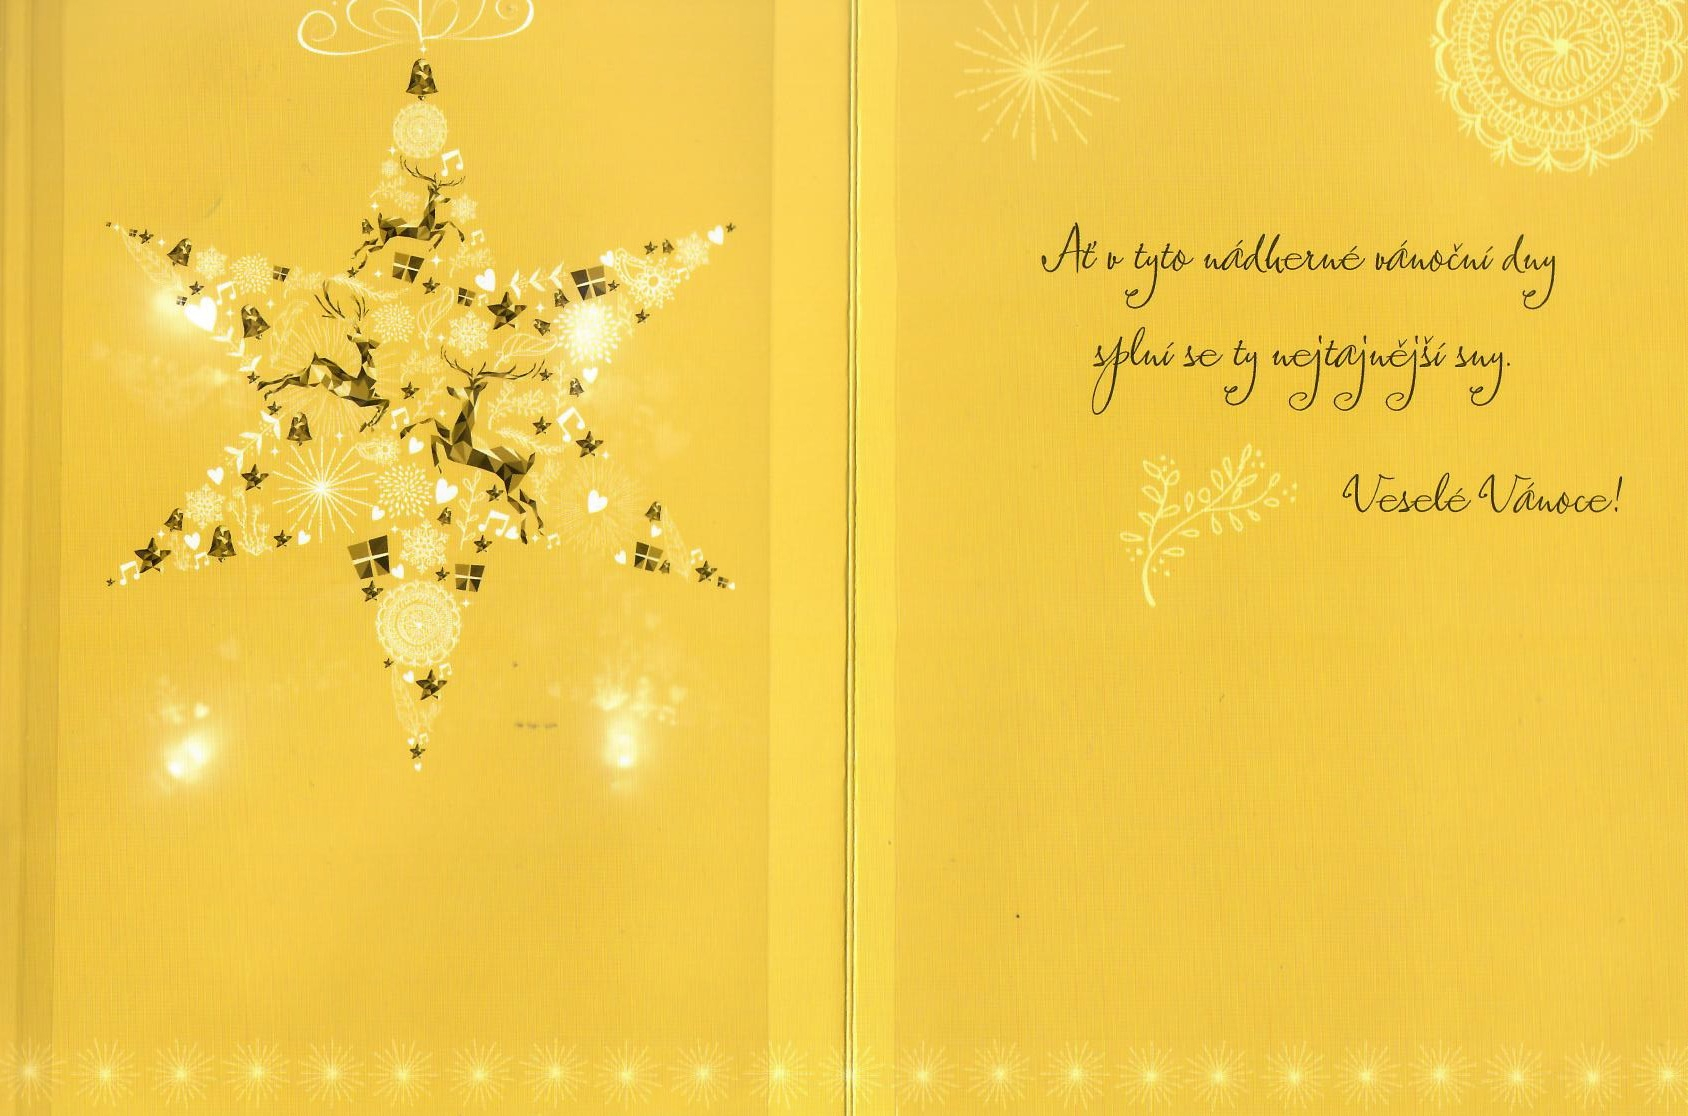 Ať v tyto nádherné vánoční dny
splní se ty nejtajnější sny.
Veselé Vánoce!